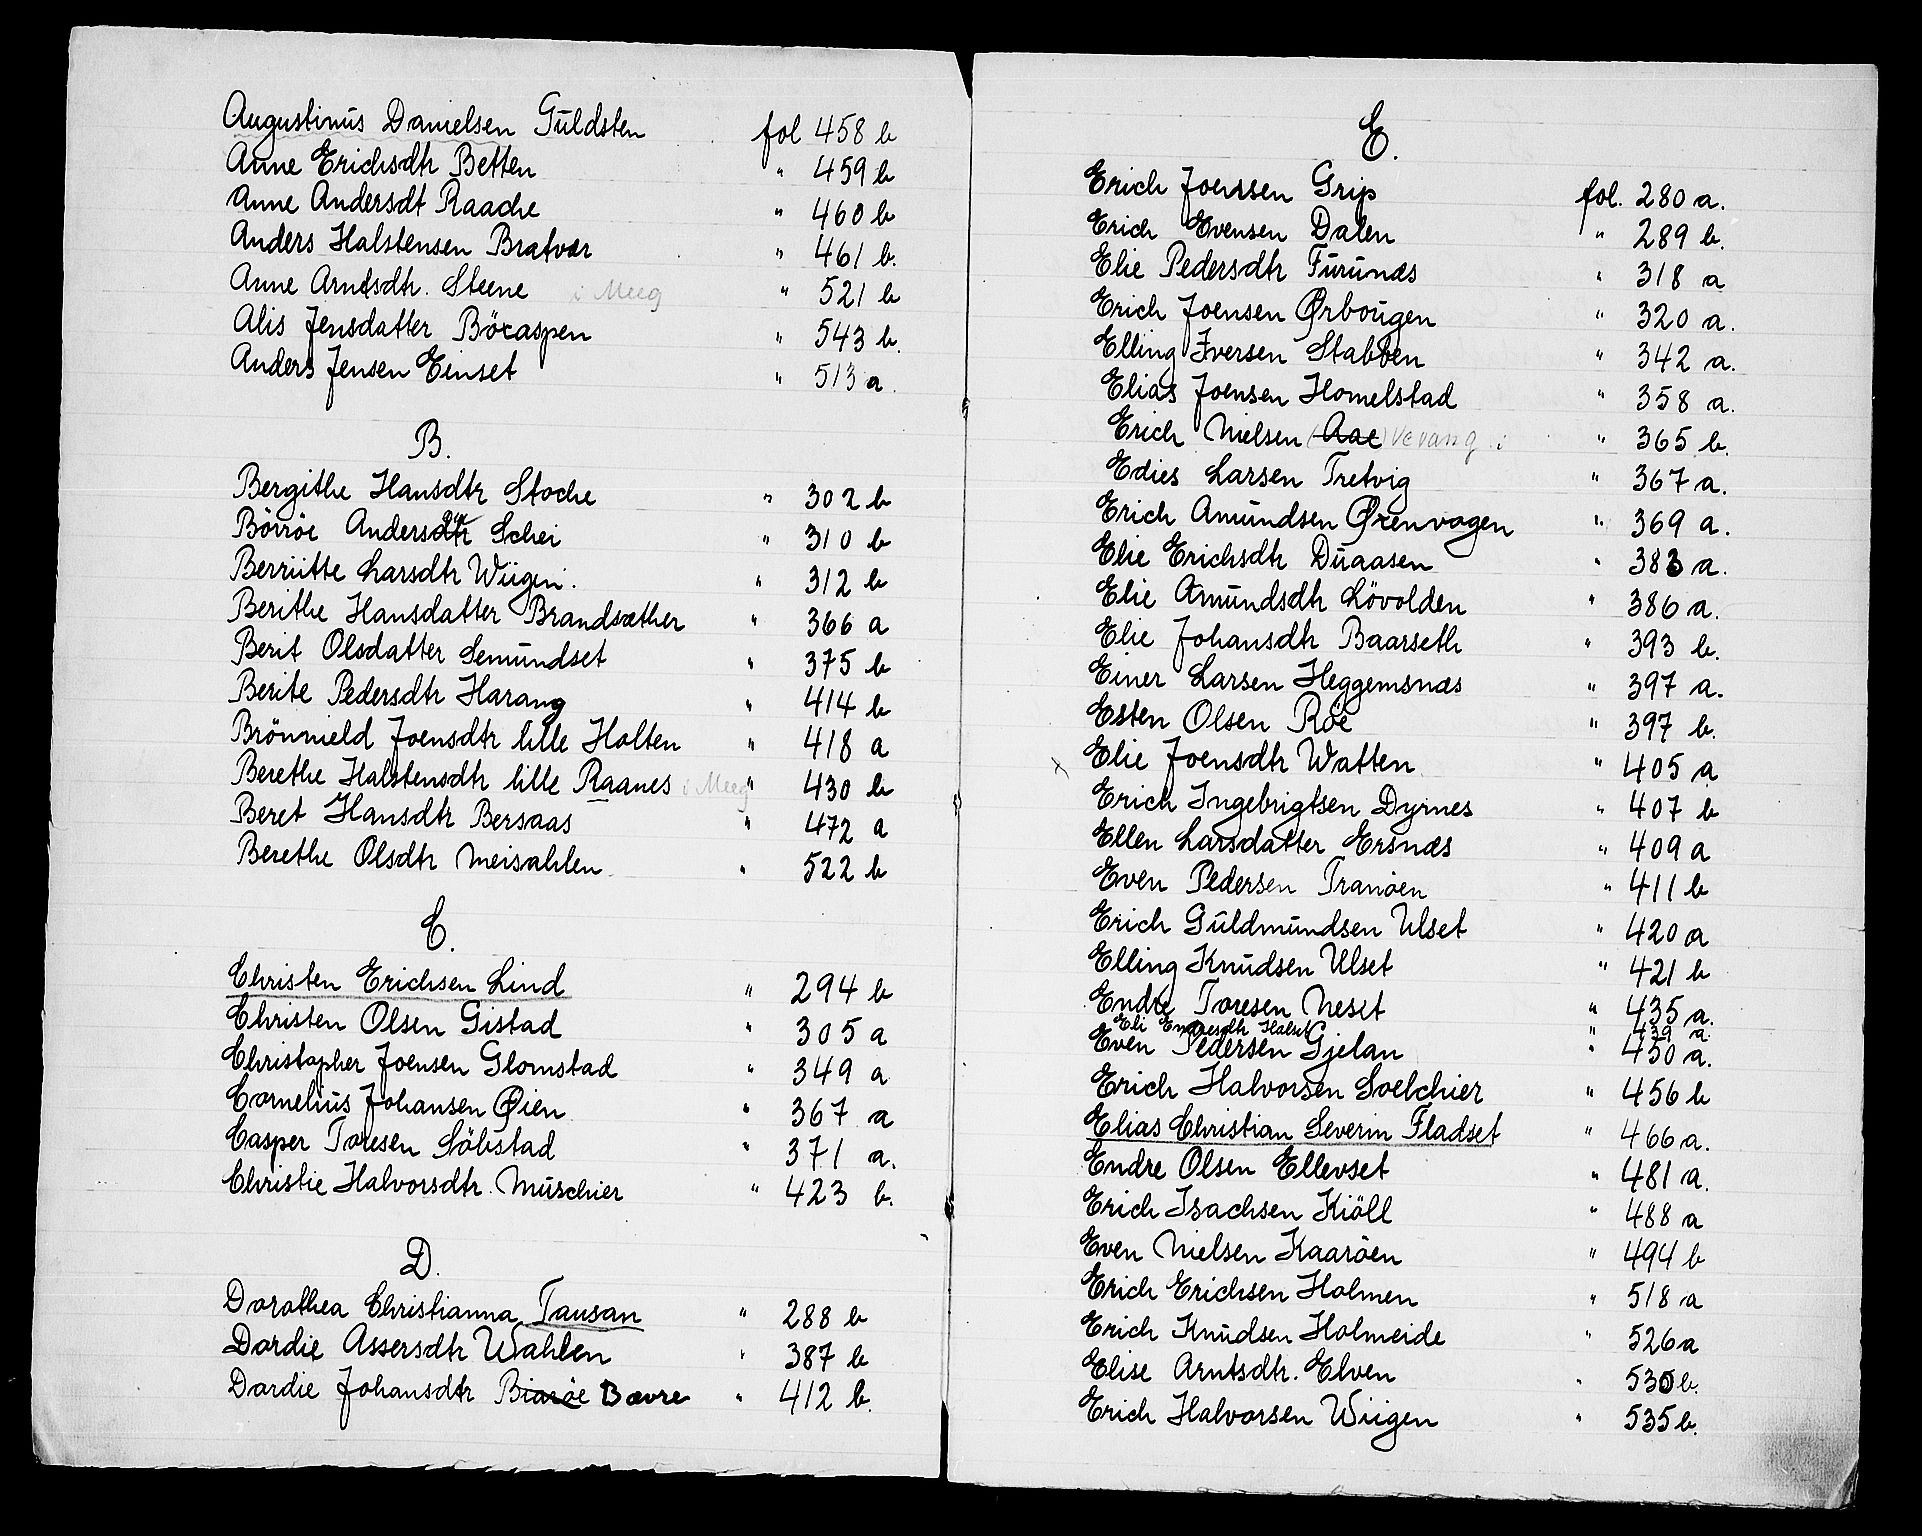 Augustinus Danielsen Guldsten fol 458 b
Anne Erichsdtr Betten " 459 b
Anne Andersdt Raache " 460 b
Anders Halstensen Bratvær " 461 b.
Anne Arntsdtr. Steene i Meeg " 521 b
Alis Jensdatter Böraspen " 543 b.
Anders Jensen Einset " 513 a.
B.
Bergithe Hansdtr Stoche " 302 b
Börröe Andersdtr Schei " 310 b
Berriitte Larsdtr Wiigen. " 312 b
Berithe Hansdatter Brandsæther " 366 a
Berit Olsdatter Semundset " 375 b
Berite Pedersdtr Harang " 414 b
Brönnield Joensdtr lille Holten " 418 a
Berethe Halstensdtr lille Raanes i Meeg " 430 b
Beret Hansdtr Bersaas " 472 a
Berethe Olsdtr Meisahlen " 522 b
C.
Christen Erichsen Lind " 294 b
Christen Olsen Gistad " 305 a
Christopher Joensen Glomstad " 349 a
Cornelius Johansen Øien " 367 a
Casper Toresen Söbstad " 371 a.
Christie Halvorsdtr. Muschier " 423 b.
D.
Dorothea Christianna Tausan " 288 b
Dordie Assersdtr Wahlen " 387 b
Dordie Johansdtr Biaröe Bævre " 412 b.
E.
Erich Joenssen Grip fol. 280 a.
Erich Evensen Dalen " 289 b.
Elie Pedersdtr Furunæs " 318 a
Erich Joensen Ørbougen " 320 a.
Elling Iversen Stabben " 342 a.
Elias Joensen Homelstad " 358 a.
Erich Nielsen (Aae) Vevang " 365 b.
Edies Larsen Tretvig " 367 a.
Erich Amundsen Ørenvogen " 369 a.
Elie Erichsdtr Duaasen " 383 a.
Elie Amundsdtr Lövolden " 386 a.
Elie Johansdtr Baarseth " 393 b.
Einer Larsen Heggemsnæs " 397 a.
Esten Olsen Röe " 397 b.
x Elie Joensdtr Watten " 405 a
Erich Ingebrigtsen Dyrnes " 407 b
Ellen Larsdatter Ersnæs " 409 a
Even Pedersen Tranöen " 411 b
Erich Guldmundsen Ulset " 420 a
Elling Knudsen Ulset " 421 b
Endre Toresen Neset " 435 a.
Eli Endresdtr Halset " 439 a.
Even Pedersen Gjelan " 450 a.
Erich Halvorsen Soelchier " 456 b
Elias Christian Severin Fladset " 466 a.
Endre Olsen Ellevset " 481 a.
Erich Isachsen Kiöll " 488 a
Even Nielsen Kaaröen " 494 b
Erich Erichsen Holmen " 518 a
Erich Knudsen Holmeide " 526 a
Elise Arntsdtr. Elven " 535 b.
Erich Halvorsen Wiigen " 535 b.